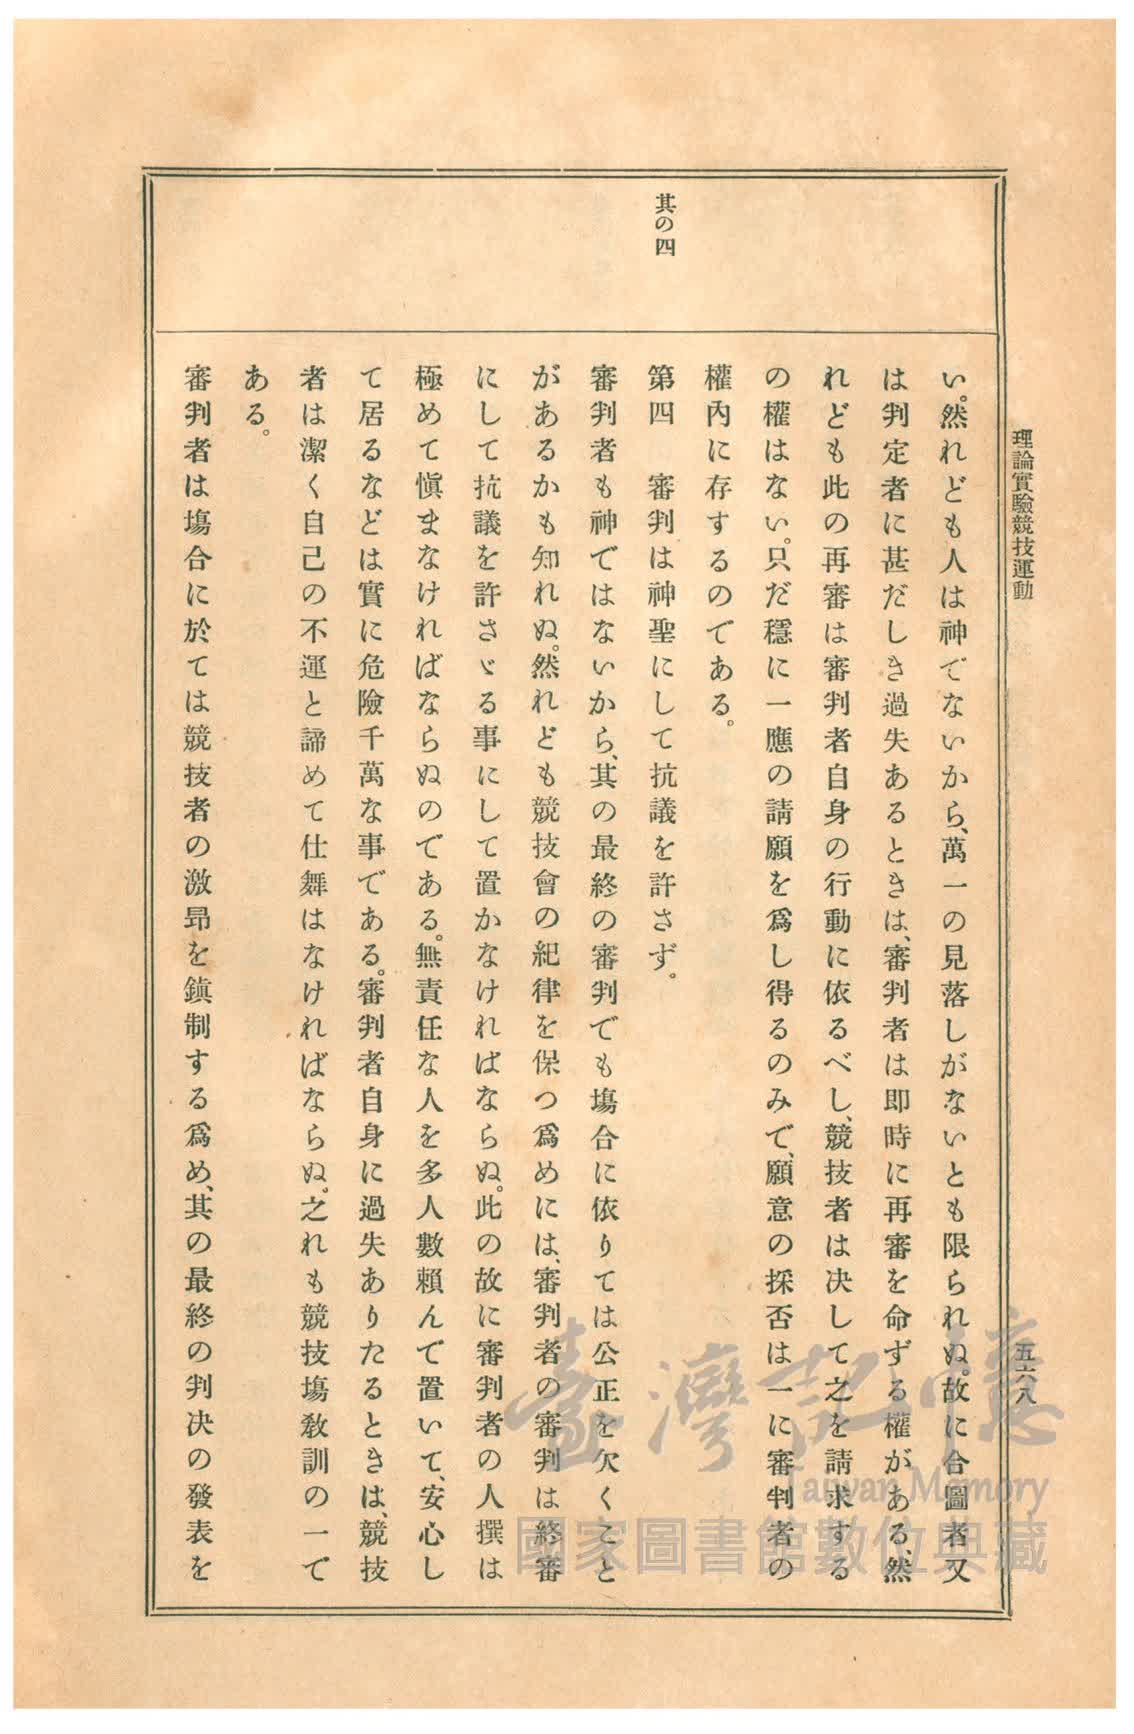 理論實驗競技運動
五六八
其の四
い。然れども人は神でないから、萬一の見落しがないとも限られぬ。故に合圖者又
は判定者に甚だしき過失あるときは、審判者は即時に再審を命ずる權がある、然
れども此の再審は審判者自身の行動に依るべし、競技者は決して之を請求する
の權はない。只だ穩に一應の請願を爲し得るのみで、願意の採否は一に審判者の
權內に存するのである。
第四　審判は神聖にして抗議を許さず。
審判者も神ではないから、其の最終の審判でも塲合に依りては公正を欠くこと
があるかも知れぬ。然れども競技會の紀律を保つ爲めには、審判者の審判は終審
にして抗議を許さゞる事にして置かなければならぬ。此の故に審判者の人撰は
極めて愼まなければならぬのである。無責任な人を多人數賴んで置いて、安心し
て居るなどは實に危險千萬な事である。審判者自身に過失ありたるときは、競技
者は潔く自己の不運と諦めて仕舞はなければならぬ。之れも競技塲敎訓の一で
ある。
審判者は塲合に於ては競技者の激昂を鎭制する爲め、其の最終の判決の發表を
臺灣記憶
Taiwan Memory
國家圖書館數位典藏